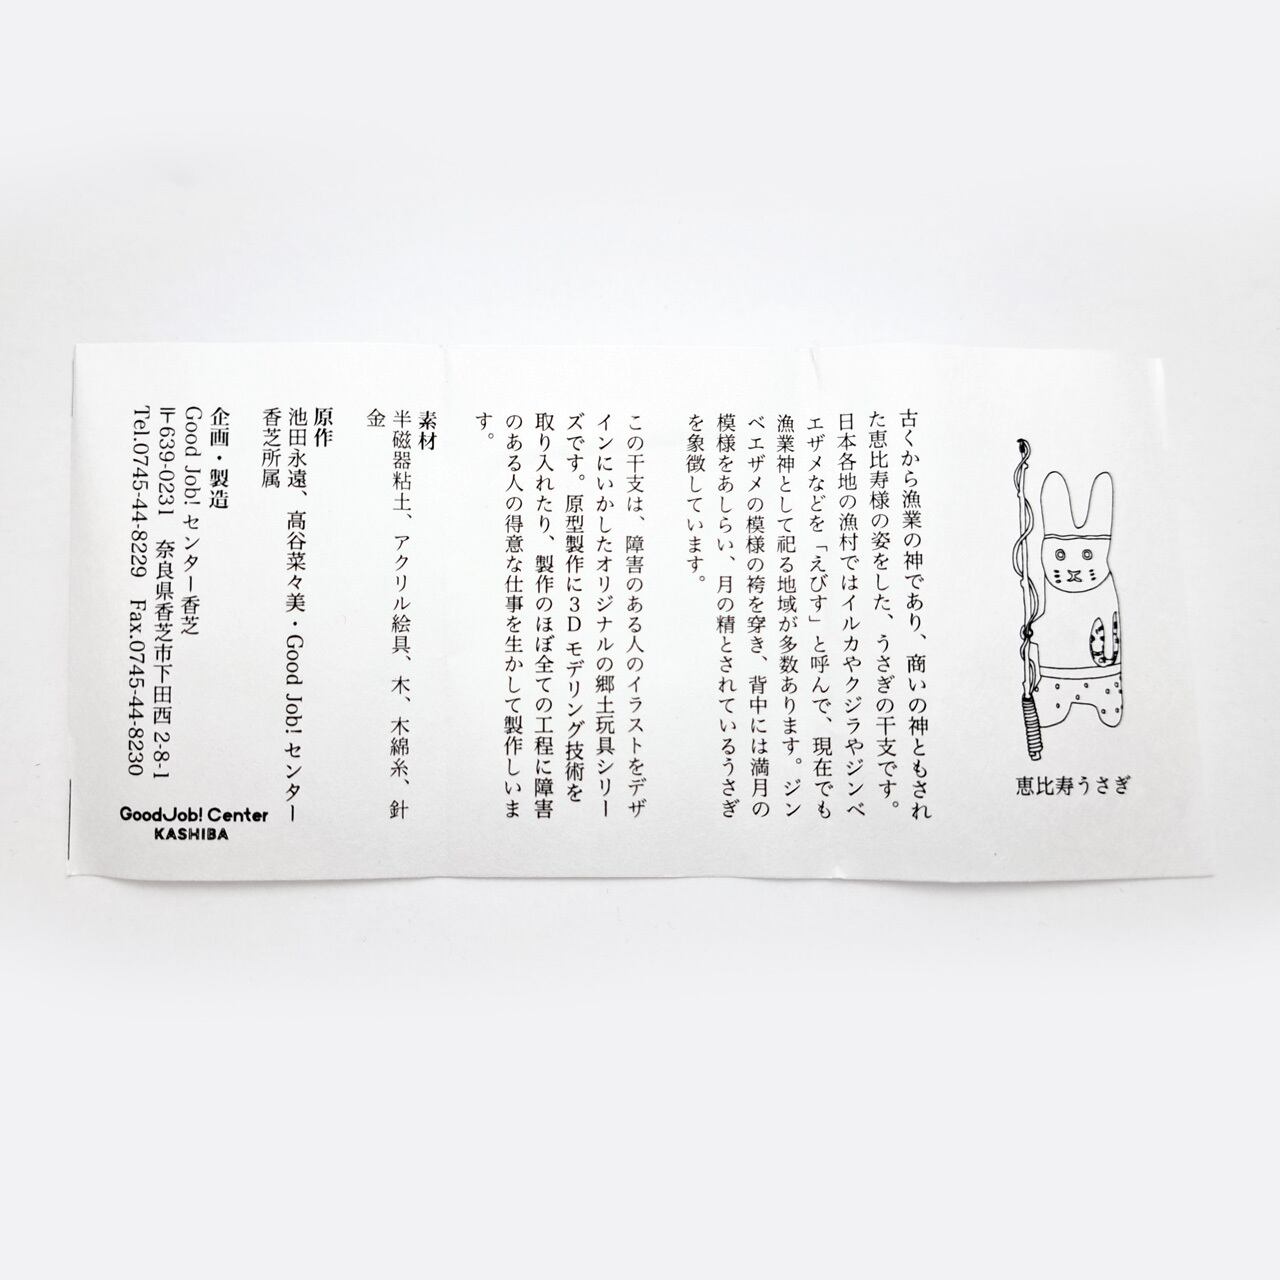 恵比寿うさぎ
古くから漁業の神であり、商いの神ともされ
た恵比寿様の姿をした、うさぎの干支です。
日本各地の漁村ではイルカやクジラやジンベ
エザメなどを「えびす」と呼んで、現在でも
漁業神として祀る地域が多数あります。ジン
ベエザメの模様の袴を穿き、背中には満月の
模様をあしらい、月の精とされているうさぎ
を象徴しています。
この干支は、障害のある人のイラストをデザ
インにいかしたオリジナルの郷土玩具シリー
ズです。原型製作に3Dモデリング技術を
取り入れたり、製作のほぼ全ての工程に障害
のある人の得意な仕事を生かして製作しいま
す。
素材
半磁器粘土、アクリル絵具、木、木綿糸、針
金
原作
池田永遠、高谷菜々美・Good Job! センター
香芝所属
企画・製造
Good Job! センター香芝
〒639-0231 奈良県香芝市下田西 2-8-1
Tel.0745-44-8229 Fax.0745-44-8230
GoodJob! Center
KASHIBA